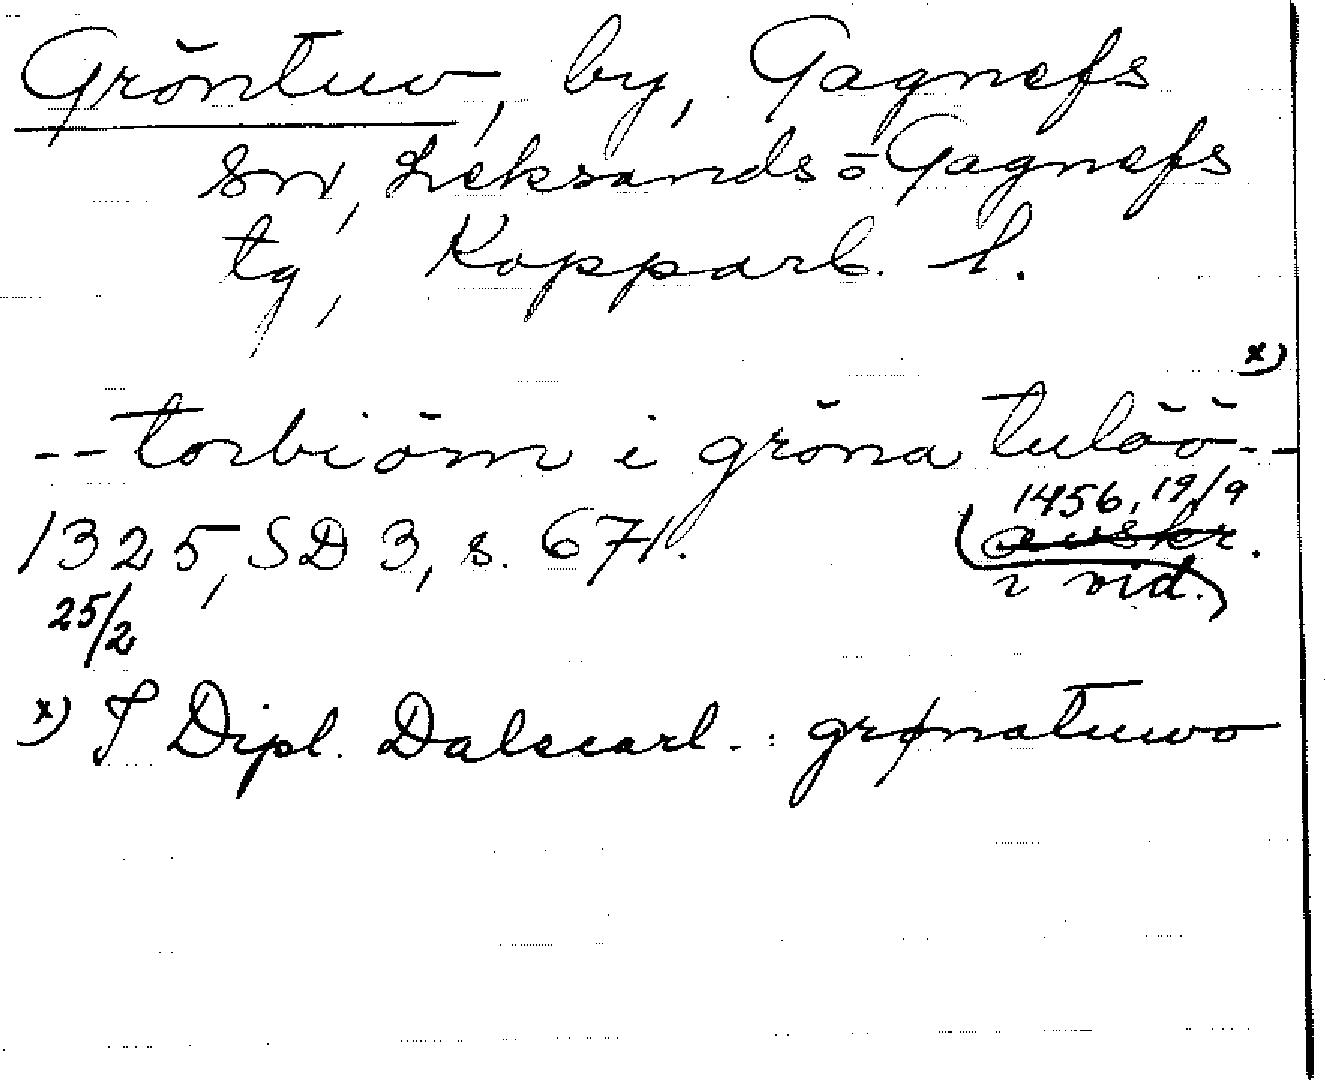 Gröntuv, by, Gagnefs
sn, Leksands- o Gagnefs
tg, Kopparb. l.
x)
-- torbiörn i gröna tulöö --
1456, 19/9
1325, SD 3, s. 671. (avskr.
25/2 i vid.)
x) I Dipl. Dalecarl. : grønatuwo